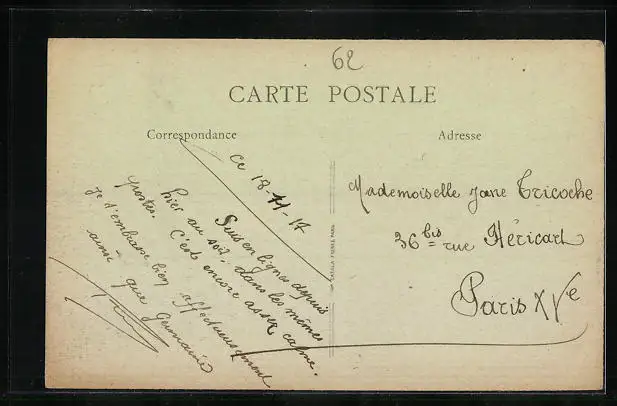 62
CARTE POSTALE
Correspondance
Adresse
Ce 18-11-17
Suis en lignes depuis
hier au soir, dans les mêmes
postes. C'est encore assez calme.
Je t'embrasse bien affectueusement
ainsi que Germaine
Mademoiselle Jane Tricoche
36 bis rue Héricart
Paris XVe